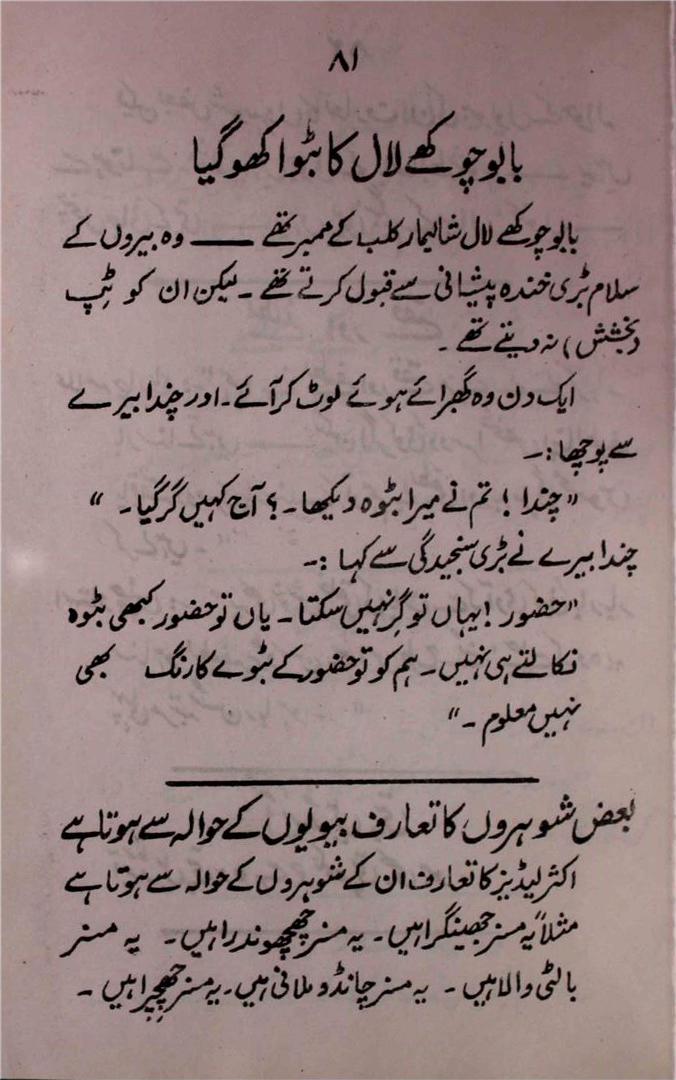 ۸۱
بابو چوکھے لال کا بٹوا کھو گیا
بابو چوکھے لال شالیمار کلب کے ممبر تھے —— وہ بیروں کے
سلام بڑی خندہ پیشانی سے قبول کرتے تھے ۔ لیکن ان کو ٹپ
(بخشش) نہ دیتے تھے ۔
ایک دن وہ گھبرائے ہوئے لوٹ کر آئے ۔ اور چندا بیرے
سے پوچھا :۔
"چندا ! تم نے میرا بٹوہ دیکھا ۔ ؟ آج کہیں گر گیا ۔ "
چندا بیرے نے بڑی سنجیدگی سے کہا :۔
"حضور ! یہاں تو گِر نہیں سکتا ۔ یاں تو حضور کبھی بٹوہ
نکالتے ہی نہیں ۔ ہم کو تو حضور کے بٹوے کا رنگ بھی
نہیں معلوم ۔ "
بعض شوہروں کا تعارف بیویوں کے حوالہ سے ہوتا ہے
اکثر لیڈیز کا تعارف ان کے شوہروں کے حوالہ سے ہوتا ہے
مثلاً یہ مسز جھینگرا ہیں ۔ یہ مسز چھچھوندرا ہیں ۔ یہ مسز
بالٹی والا ہیں ۔ یہ مسز چانڈو ملانی ہیں ۔ یہ مسز چھچرا ہیں ۔